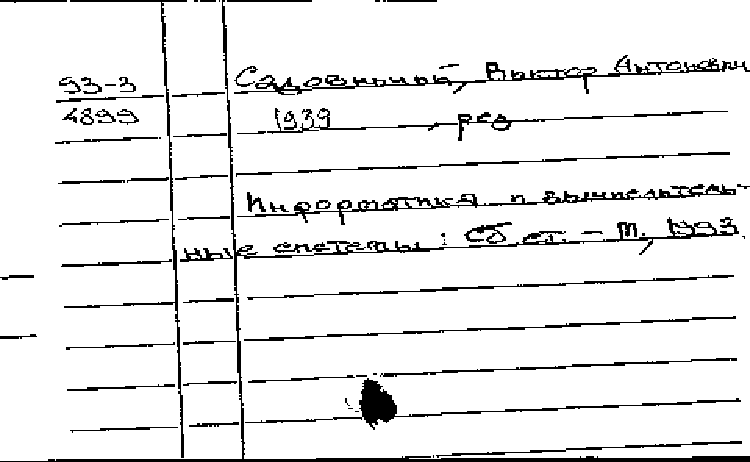 93-3 Садовничий, Виктор Антонович
4899 1939 , ред
Информатика и вычислитель-
ные системы: Сб. ст. - М., 1993